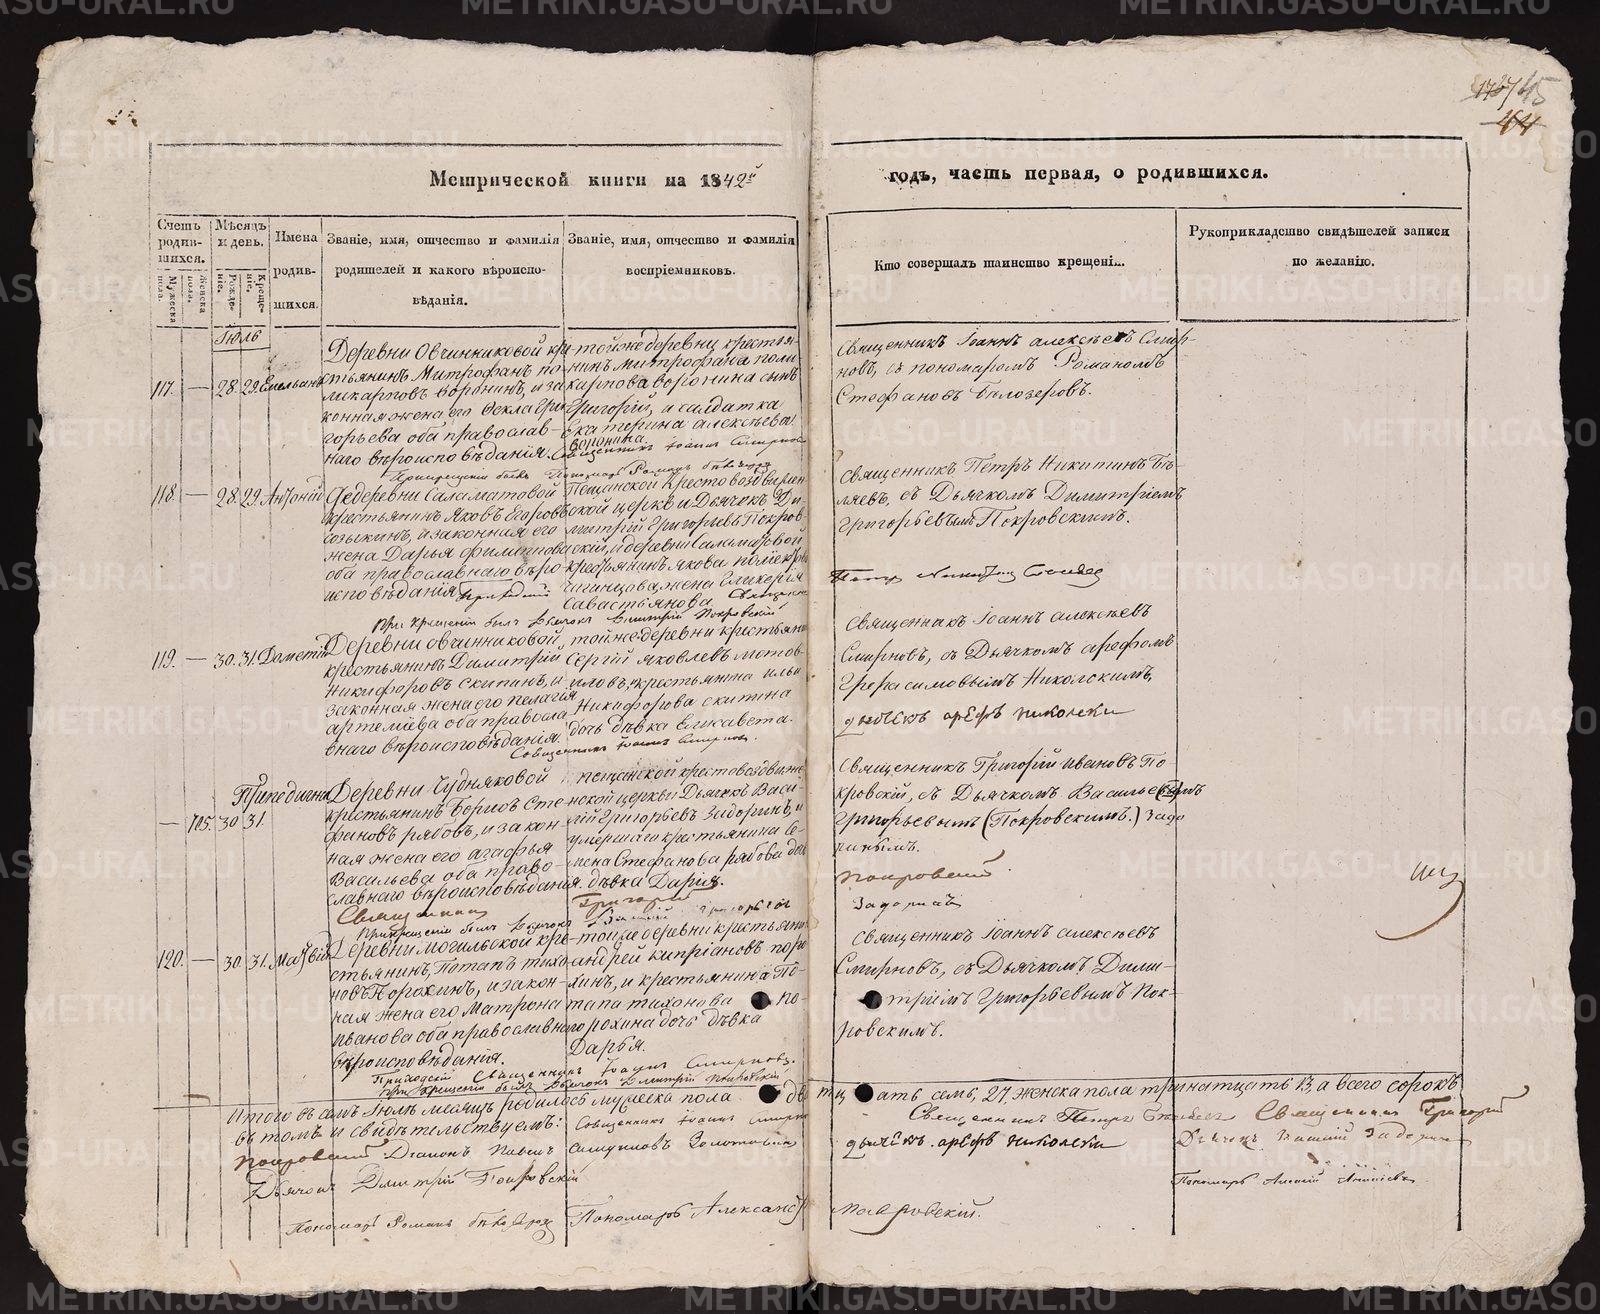 45
44
Метрической книги на 1842й
годъ, часть первая, о родившихся.
Счетъ родившихся.
Мужеска пола.
Женска пола.
Мѣсяцъ и день.
Рожденіе.
Крещеніе.
Имена родившихся.
Званіе, имя, отчество и фамилія родителей и какого вѣроисповѣданія.
Званіе, имя, отчество и фамилія воспріемниковъ.
Кто совершалъ таинство крещенія.
Рукоприкладство свидѣтелей записи по желанію.
Іюль
117. — 28. 29. Емельянъ
Деревни Овчинниковой кре-
стьянинъ Митрофанъ по-
ликарповъ Воронинъ, и за
конная жена его Ѳекла Гри
горьева оба православ-
наго вѣроисповѣданія.
той же деревни крестья-
нинъ Митрофана поли-
карпова Воронина сынъ
Григорій, и салдатка
Екатерина алексѣева
Воронина.
Священникъ Іоаннъ Смирновъ
Священникъ Іоаннъ алексѣевъ Смир-
новъ, съ пономаремъ Романомъ
Стефановъ Бѣлозеровъ.
При крещеніи былъ Пономарь Романъ Бѣлозеровъ
118. — 28. 29. Антоній
деревни Саламатовой
крестьянинъ Яковъ Егоровъ
Созыкинъ, и законная его
жена Дарья филиппова
оба православнаго вѣро-
исповѣданія
Пещанской Крестовоздвижен
ской церкви Дьячекъ Ди-
митрій Григорьевъ Покров
скій, и деревни Саламатовой
крестьянинъ Якова
жена Гликерія
Савастьянова
Священникъ Петръ Никитинъ Бѣ-
ляевъ, съ Дьячкомъ Димитріемъ
Григорьевымъ Покровскимъ.
При крещеніи былъ Дьячокъ Димитрій Покровскій
119. — 30. 31. Дометій
Деревни овчинниковой,
крестьянинъ Димитрій
Никифоровъ скипинъ, и
законная жена его пелагія
артеміева оба правосла
внаго вѣроисповѣданія.
той же деревни крестьянинъ
Сергій яковлевъ мотов-
иловъ, и крестьянина ильи
Никифорова скипина
дочь дѣвка Елисавета.
Священникъ Іоаннъ Смирновъ.
Священникъ Іоаннъ алексѣевъ
Смирновъ, съ Дьячкомъ арефомъ
Герасимовымъ Николскимъ,
дьячекъ арефъ николски
— 105. 30. 31. Деревни Чудняковой
крестьянинъ Борисъ Сте
фановъ рябовъ, и закон-
ная жена его агафья
Васильева оба право-
славнаго вѣроисповѣданія.
пещанской крестовоздвиже
нской церкви Дьячекъ Васи-
лій Григорьевъ Задоринъ, и
умершаго крестьянина Се-
мена Стефанова рябова дочь
дѣвка Дарія.
Священникъ Григорій
Священникъ Григорій ивановъ По-
кровскій, съ Дьячкомъ Васильевымъ
Григорьевымъ (Покровскимъ.) Задо
ринымъ.
Покровскій.
120. — 30. 31. Матвій
Деревни могильской кре-
стьянинъ, Потапъ тихо
новъ Порохинъ, и закон-
ная жена его Матрона
иванова оба православнаго
вѣроисповѣданія.
той же деревни крестьянинъ
андрей кипріановъ поро
хинъ, и крестьянина По-
тапа тихонова по-
рохина дочь дѣвка
Дарья.
Приходскій Священникъ Іоаннъ Смирновъ.
При крещеніи былъ Дьячокъ Димитрій Покровскій
Священникъ Іоаннъ алексѣевъ
Смирновъ, съ Дьячкомъ Дими-
тріемъ Григорьевымъ Пок-
ровскимъ.
Итого въ семъ Іюлѣ мѣсяцѣ родилось мужеска пола двatцать семь, 27, женска пола тринатцать 13, а всего сорокъ
въ томъ и свидѣтельствуемъ: Священникъ Іоаннъ Смирновъ
Священникъ Петръ Бѣляевъ Священникъ Григорій
Покровскій Діаконъ Павелъ самуиловъ
дьячекъ арефъ николски
Дьячокъ Василій Задоринъ
Дьячокъ Дмитрій Покровскій
Пономарь Романъ Бѣлозеровъ Пономарь Александръ